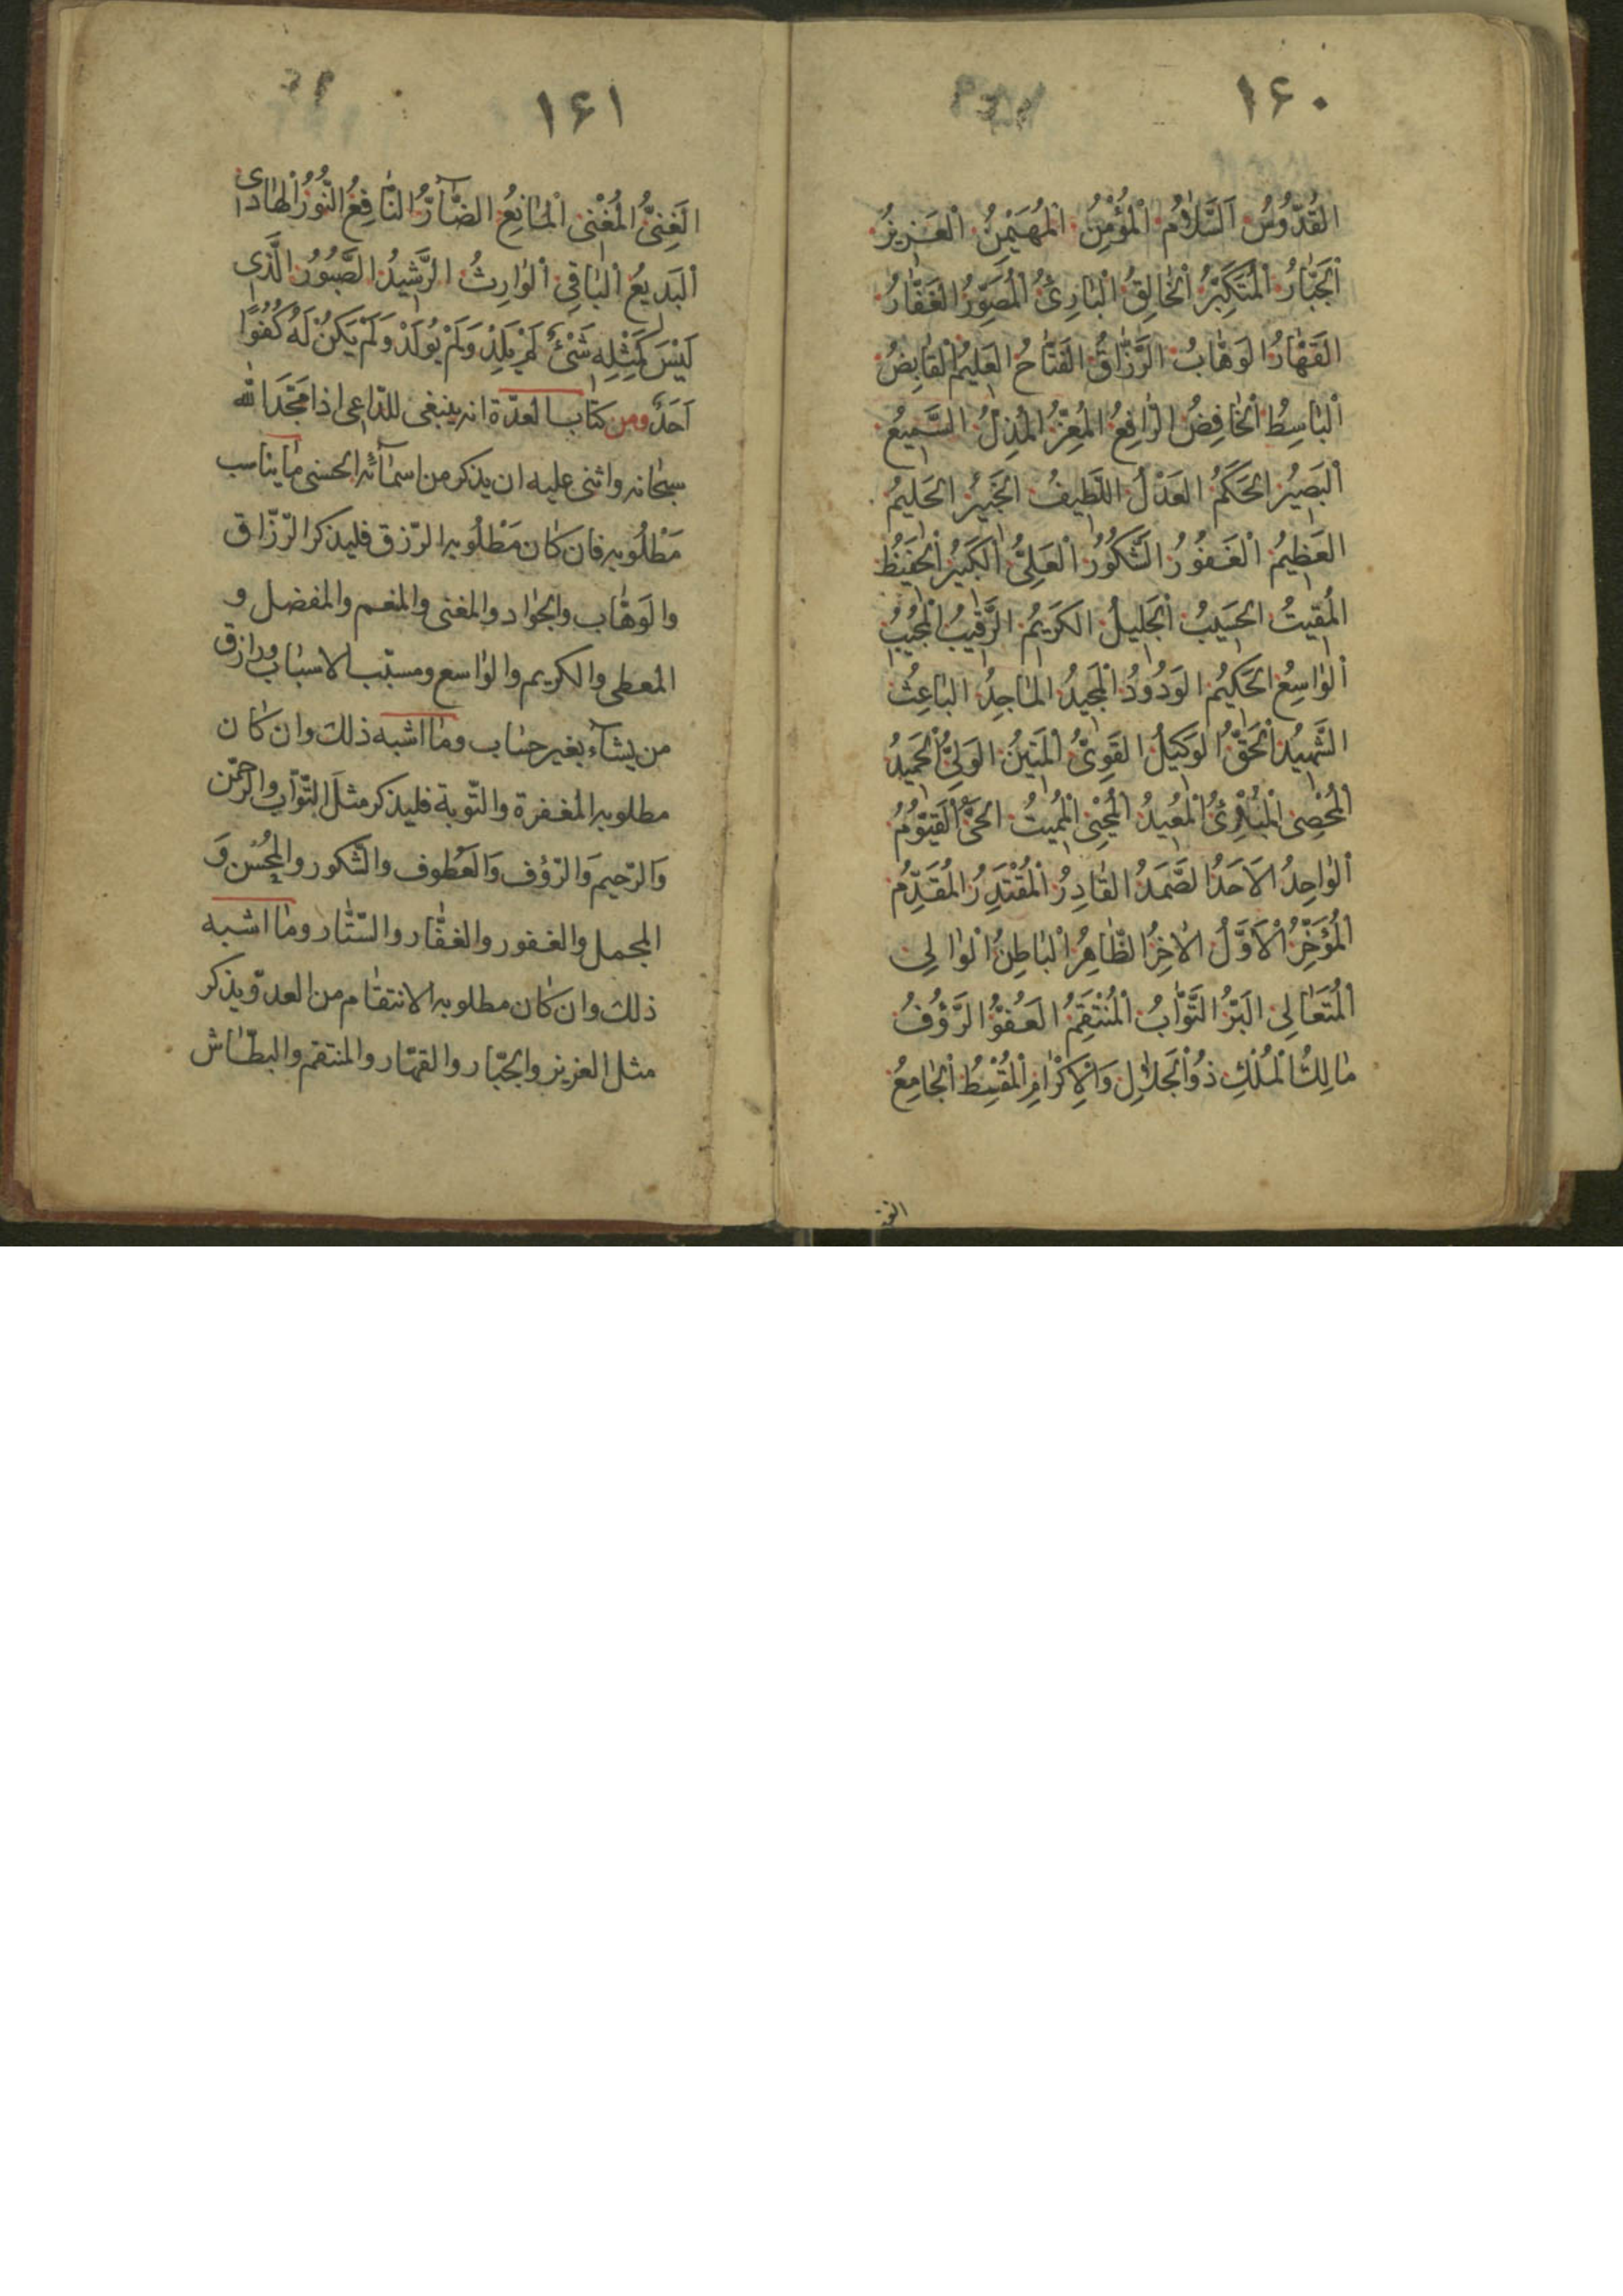 ١۶٠
القُدُّوسُ اَلسَّلٰامُ اَلْمُؤْمِنُ اَلْمُهَيْمِنُ اَلْعَزِيزُ
اَلْجَبّٰارُ اَلْمُتَكَبِّرُ اَلْخٰالِقُ اَلْبٰارِئُ اَلْمُصَوِّرُ الغَفّٰارُ
القَهّٰارُ الوَهّٰابُ الرَّزّٰاقُ الفَتّٰاحُ العَلِيمُ القٰابِضُ
اَلْبٰاسِطُ اَلْخٰافِضُ الرّٰافِعُ المُعِزُّ المُذِلُّ السَّمِيعُ
اَلْبَصِيرُ الحَكَمُ العَدْلُ اللَّطِيفُ الخَبِيرُ الحَلِيمُ
العَظِيمُ اَلْغَفُورُ الشَّكُورُ اَلْعَلِىُّ اَلْكَبِيرُ اَلْحَفِيظُ
المُقِيتُ الحَسِيبُ اَلْجَلِيلُ الكَرِيمُ الرَّقِيبُ المُجِيبُ
اَلْوٰاسِعُ الحَكِيمُ الوَدُودُ اَلْمَجِيدُ المٰاجِدُ البٰاعِثُ
الشَّهِيدُ اَلْحَقُّ الوَكِيلُ القَوِىُّ اَلْمَتِينُ الوَلِىُّ اَلْحَمِيدُ
اَلْمُحْصِى اَلْمُبْدِئُ اَلْمُعِيدُ اَلْمُحْيِى اَلْمُمِيتُ الحَىُّ اَلْقَيُّومُ
اَلْوٰاحِدُ الاَحَدُ الصَّمَدُ القٰادِرُ اَلْمُقْتَدِرُ المُقَدِّمُ
اَلْمُؤَخِّرُ اَلْاَوَّلُ الاٰخِرُ الظّٰاهِرُ اَلْبٰاطِنُ اَلْوٰالِى
اَلْمُتَعٰالِى البَرُّ التَّوّٰابُ اَلْمُنْتَقِمُ العَفُوُّ الرَّؤُفُ
مٰالِكُ اَلْمُلْكِ ذُو اَلْجَلٰالِ وَالْاِكْرٰامِ اَلْمُقْسِطُ اَلْجٰامِعُ
١۶١
الغَنِىُّ المُغْنِى اَلْمٰانِعُ الضّٰآرُّ النّٰافِعُ النُّورُ اَلْهٰادِى
اَلْبَدِيعُ اَلْبٰاقِى اَلْوٰارِثُ الرَّشِيدُ الصَّبُورُ الَّذِى
لَيْسَ كَمِثْلِهِ شَىْءٌ لَمْ يَلِدْ وَلَمْ يُولَدْ وَلَمْ يَكُنْ لَهُ كُفُوًا
اَحَدٌ ومن كتٰاب العدّة انه ينبغى للدّاعى اذا مَجَّدَ الله
سبحٰانه واثنى عليه ان يذكر من اسمٰآئه الحسنى مٰا يناسب
مَطْلُوبه فان كٰان مَطْلُوبه الرّزق فليذكر الرّزّاق
والوَهّٰاب والجوٰاد والمغنى والمنعم والمفضل و
المعطى والكريم والوٰاسع ومسبّب الاسبٰاب ورازق
من يشآء بغير حسٰاب ومٰا اشبه ذلك وان كٰان
مطلوبه المغفرة والتّوبة فليذكر مثل التّوّاب والرحمّن
وَالرّحيم وَالرّؤف وَالعَطوف والشّكور والمحُسن وَ
المجمل والغفور والغفّٰار والسّتّٰار ومٰا اشبه
ذلك وان كٰان مطلوبه الانتقٰام من العدوّ يذكر
مثل العزيز والجبّٰار والقهّٰار والمنتقم والبطّٰاش